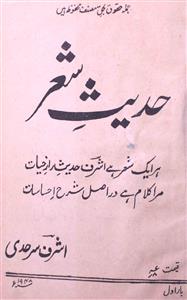 جملہ حقوق بحق مصنف محفوظ ہیں
حدیثِ شعر
ہر ایک شعر ہے اشرفؔ حدیثِ رازِ حیات
مرا کلام ہے دراصل شرحِ احساسات
اشرف سرحدی
قیمت
۱۹۴۸ء
بار اول